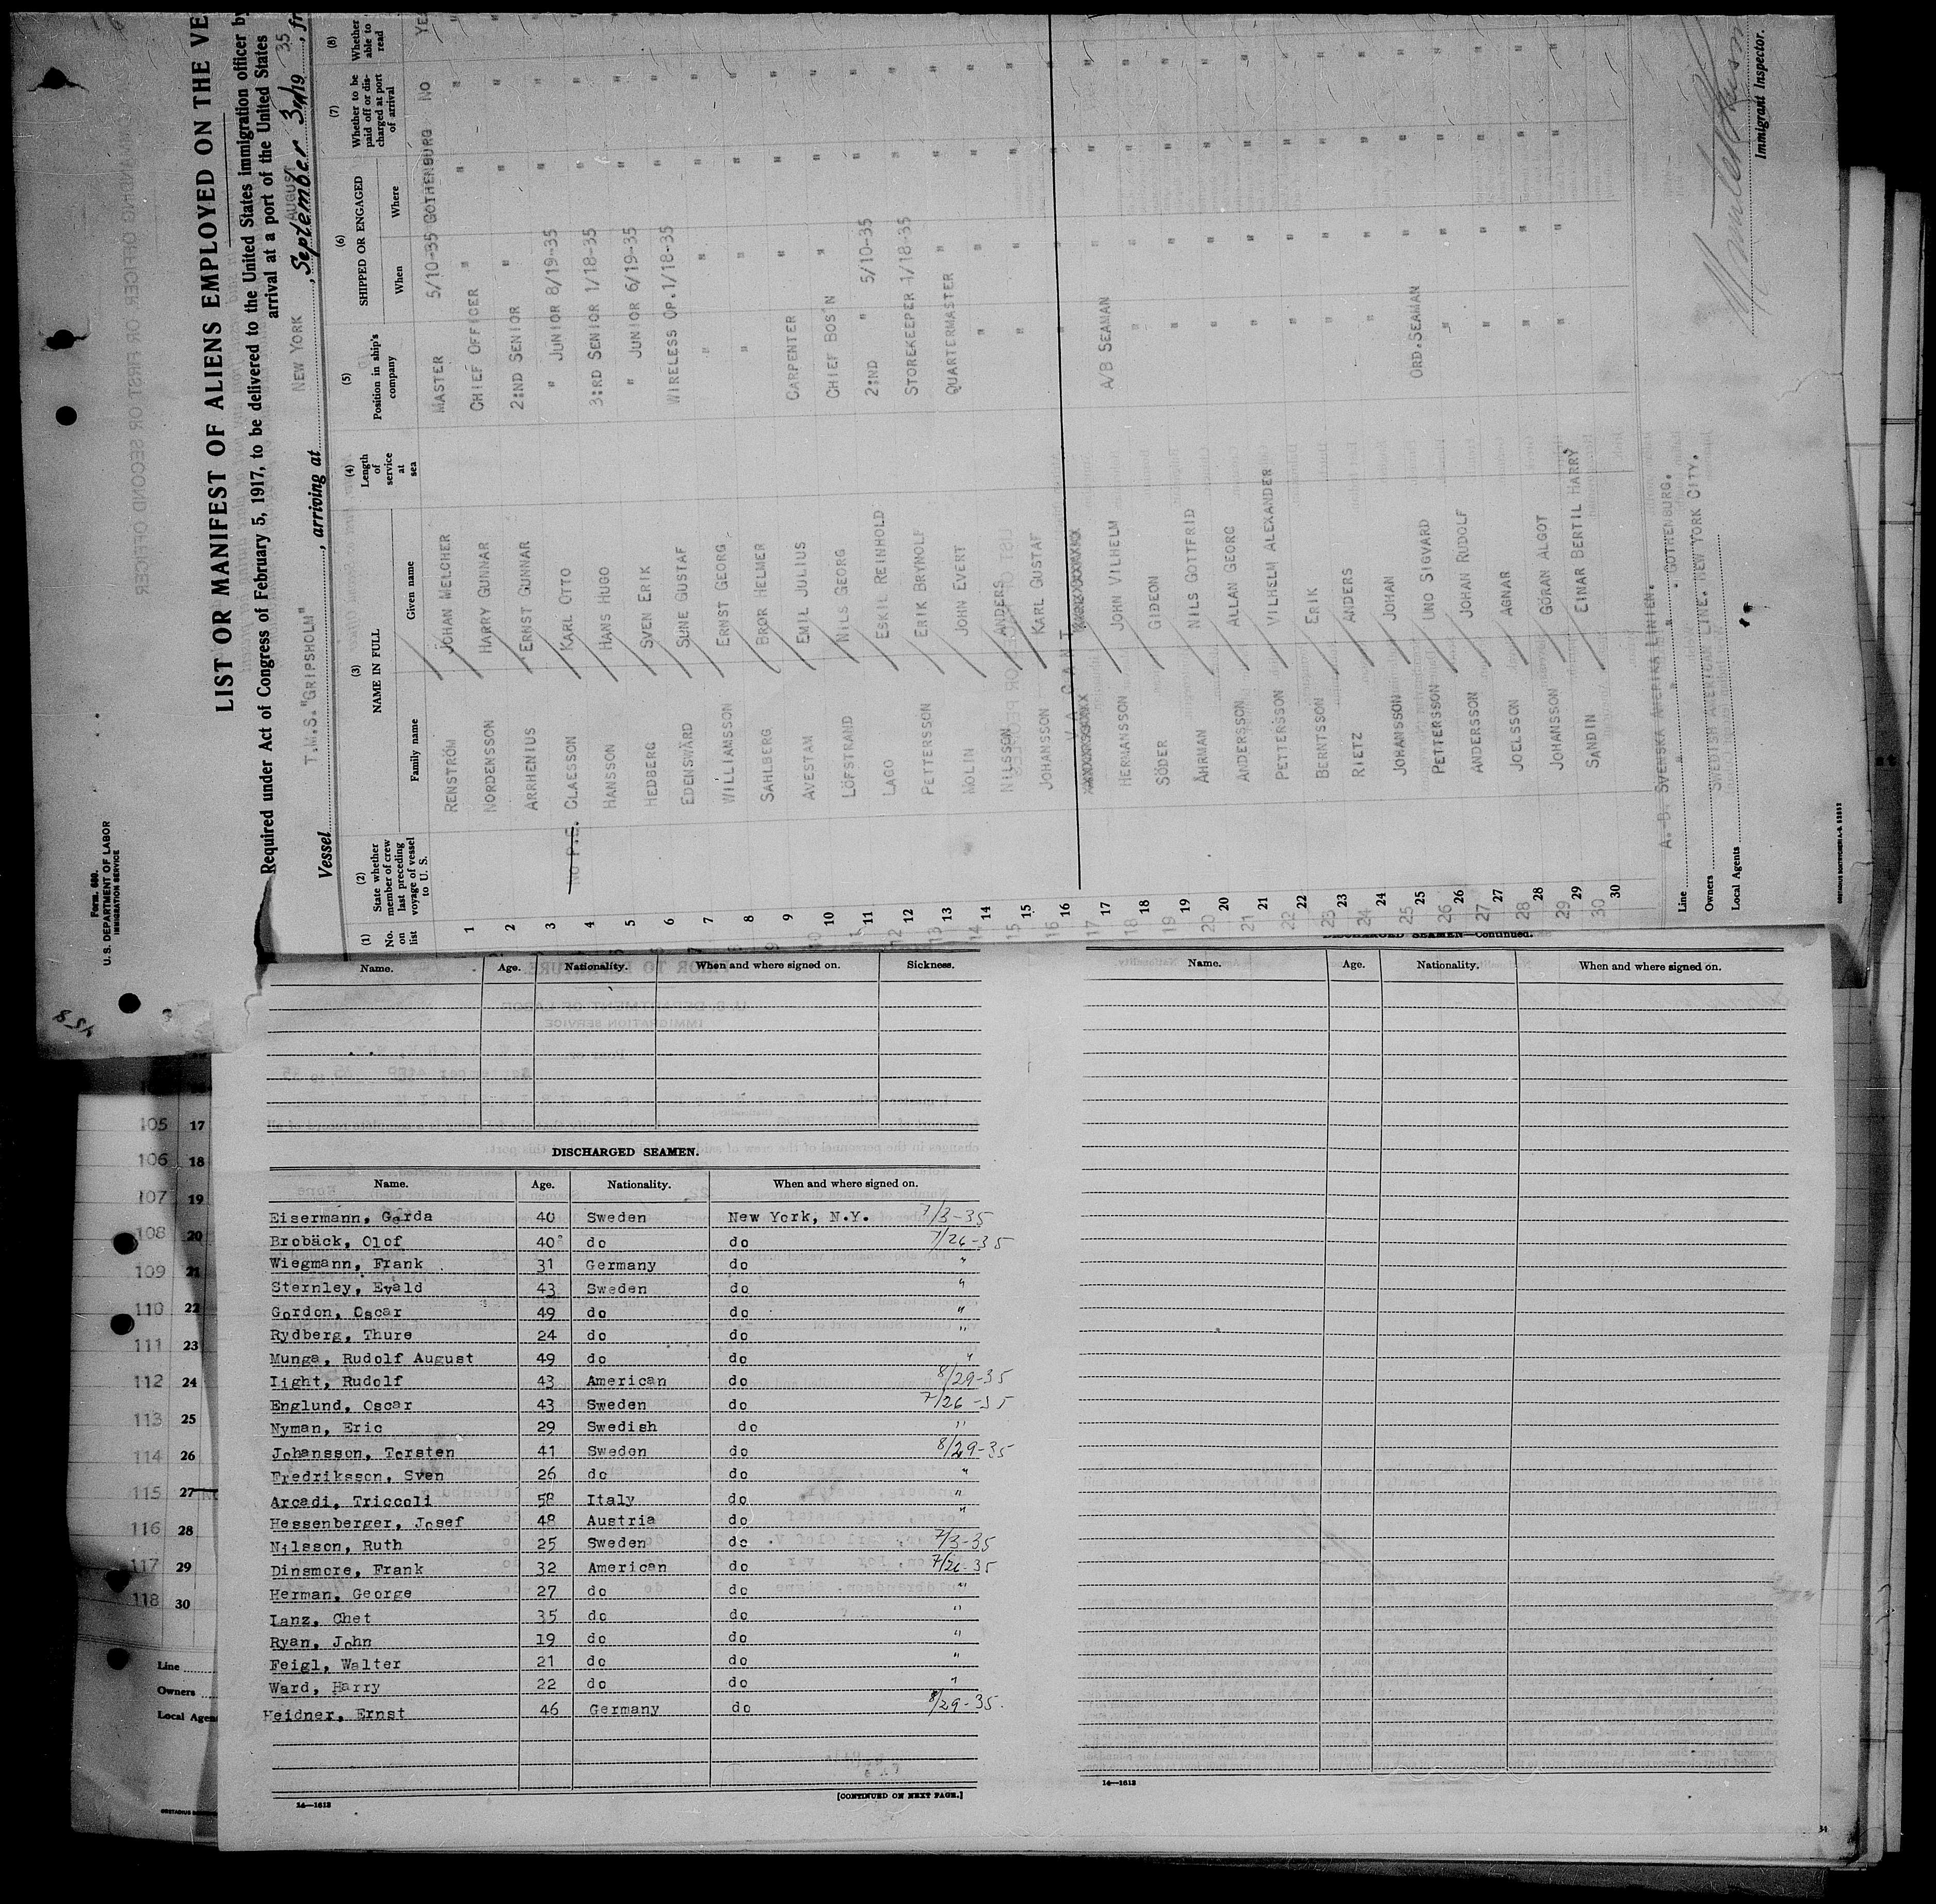 Form 680.
U. S. DEPARTMENT OF LABOR
IMMIGRATION SERVICE
LIST OR MANIFEST OF ALIENS EMPLOYED ON THE VE
Required under Act of Congress of February 5, 1917, to be delivered to the United States immigration officer by
arrival at a port of the United States
Vessel T.M.S."GRIPSHOLM", arriving at NEW YORK, AUGUST September 3rd 19 35, fr
(1) No. on list
(2) State whether member of crew last preceding voyage of vessel to U. S.
(3) NAME IN FULL
Family name Given name
(4) Length of service at sea
(5) Position in ship's company
(6) SHIPPED OR ENGAGED
When Where
(7) Whether to be paid off or discharged at port of arrival
(8) Whether able to read
1 RENSTRÖM JOHAN MELCHER MASTER 5/10-35 GOTHENBURG NO YE
2 NORDENSSON HARRY GUNNAR CHIEF OFFICER " " " "
3 ARRHENIUS ERNST GUNNAR 2:ND SENIOR " " " "
4 NO P.E. CLAESSON KARL OTTO " JUNIOR 8/19-35 " " "
5 HANSSON HANS HUGO 3:RD SENIOR 1/18-35 " " "
6 HEDBERG SVEN ERIK " JUNIOR 6/19-35 " " "
7 EDENSWÄRD SUNE GUSTAF WIRELESS OP. 1/18-35 " " "
8 WILLIAMSSON ERNST GEORG " " " " "
9 SAHLBERG BROR HELMER " " " " "
10 AVESTAM EMIL JULIUS CARPENTER " " " "
11 LÖFSTRAND NILS GEORG CHIEF BOS'N " " " "
12 LAGO ESKIL REINHOLD 2:ND " 5/10-35 " " "
13 PETTERSSON ERIK BRYNOLF STOREKEEPER 1/18-35 " " "
14 MOLIN JOHN EVERT QUARTERMASTER " " " "
15 NILSSON ANDERS " " " " "
16 JOHANSSON KARL GUSTAF " " " " "
17 V A C A N T
18 HERMANSSON JOHN VILHELM A/B SEAMAN " " " "
19 SÖDER GIDEON " " " " "
20 ÅHRMAN NILS GOTTFRID " " " " "
21 ANDERSSON ALLAN GEORG " " " " "
22 PETTERSSON VILHELM ALEXANDER " " " " "
23 BERNTSSON ERIK " " " " "
24 RIETZ ANDERS " " " " "
25 JOHANSSON JOHAN " " " " "
26 PETTERSSON UNO SIGVARD ORD.SEAMAN " " " "
27 ANDERSSON JOHAN RUDOLF " " " " "
28 JOELSSON AGNAR " " " " "
29 JOHANSSON GÖRAN ALGOT " " " " "
30 SANDIN EINAR BERTIL HARRY " " " " "
Line A.-B. SVENSKA AMERIKA LINIEN.
Owners " " " GOTHENBURG.
Local Agents SWEDISH AMERICAN LINE. NEW YORK CITY.
Immigrant Inspector.
Name. Age. Nationality. When and where signed on. Sickness.
DISCHARGED SEAMEN.
Name. Age. Nationality. When and where signed on.
Eisermann, Gerda 40 Sweden New York, N.Y. 7/3-35
Brobäck, Olof 40 do do 7/26-35
Wiegmann, Frank 31 Germany do "
Sternley, Evald 43 Sweden do "
Gordon, Oscar 49 do do "
Rydberg, Thure 24 do do "
Munga, Rudolf August 49 do do "
Light, Rudolf 43 American do 8/29-35
Englund, Oscar 43 Sweden do 7/26-35
Nyman, Eric 29 Swedish do "
Johansson, Torsten 41 Sweden do 8/29-35
Fredriksson, Sven 26 do do "
Arcadi, Triccoli 58 Italy do "
Hessenberger, Josef 48 Austria do "
Nilsson, Ruth 25 Sweden do 7/3-35
Dinsmore, Frank 32 American do 7/26-35
Herman, George 27 do do "
Lanz, Chet 35 do do "
Ryan, John 19 do do "
Feigl, Walter 21 do do "
Ward, Harry 22 do do "
Heidner, Ernst 46 Germany do 8/29-35.
14—1613
[CONTINUED ON NEXT PAGE.]
DISCHARGED SEAMEN—Continued.
Name. Age. Nationality. When and where signed on.
14—1613
105 17
106 18
107 19
108 20
109 21
110 22
111 23
112 24
113 25
114 26
115 27
116 28
117 29
118 30
Line
Owners
Local Agen